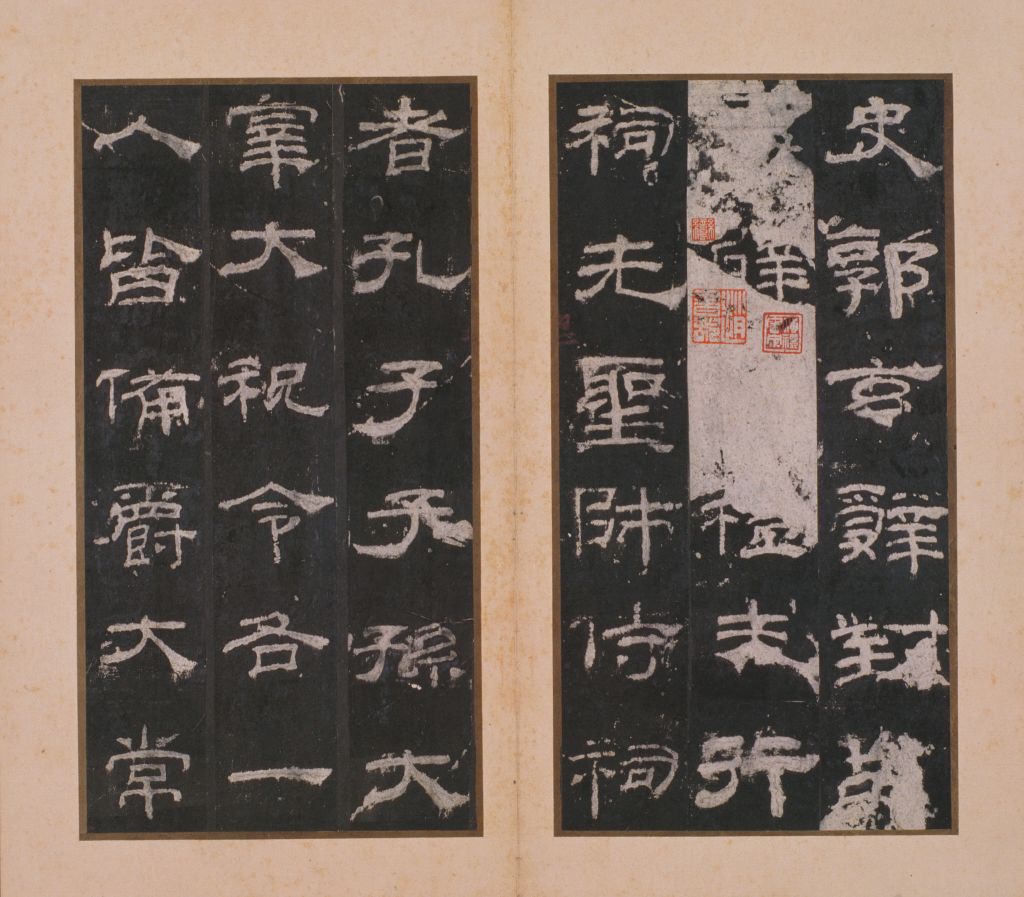 史郭玄辭對
禮未行
祠先聖師侍祠
者孔子子孫大
宰大祝令各一
人皆備爵大常